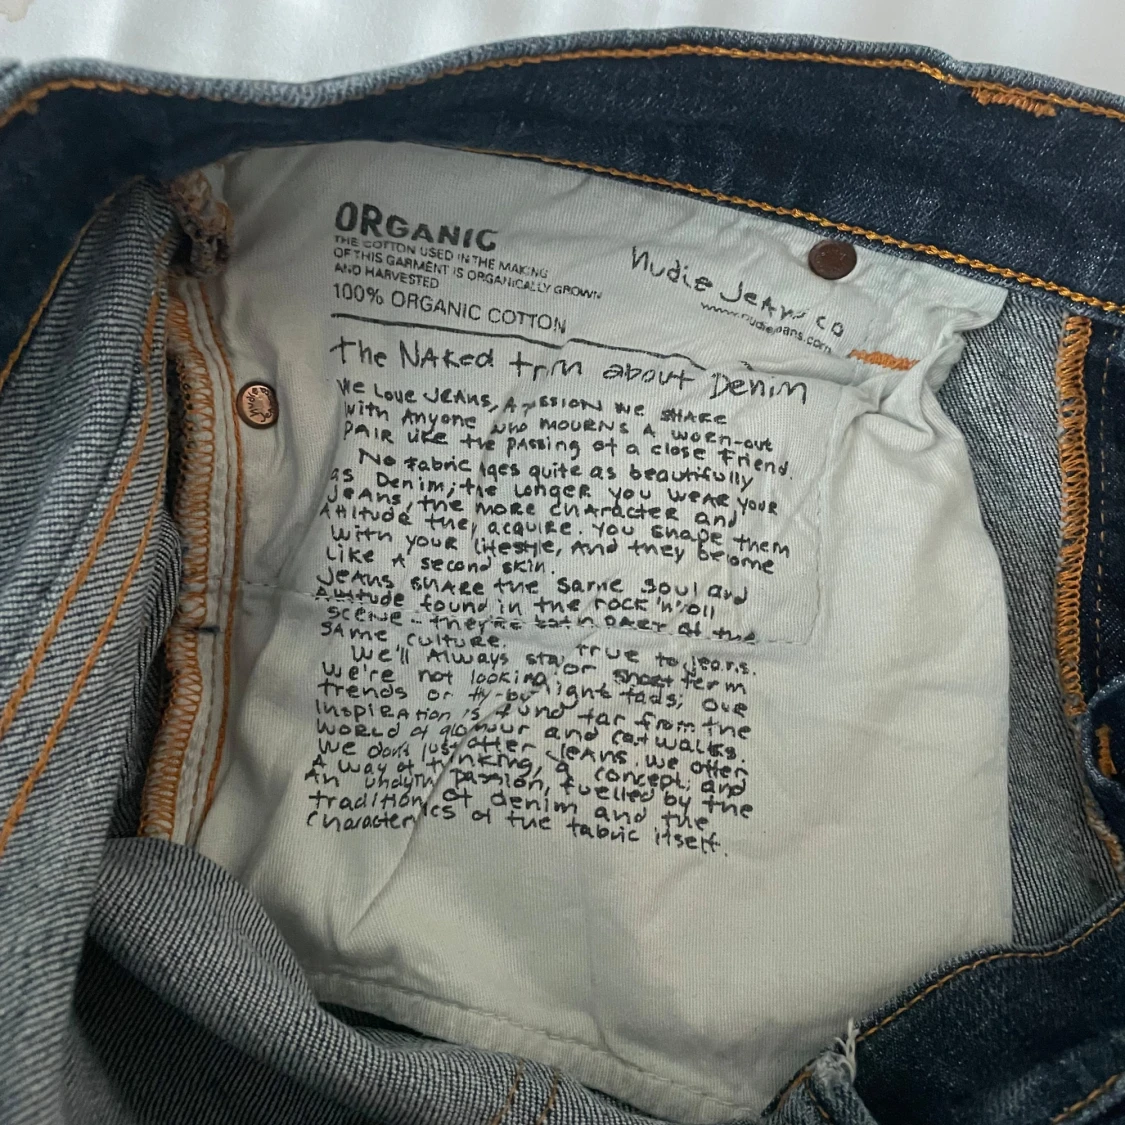 ORGANIC
THE COTTON USED IN THE MAKING
OF THIS GARMENT IS ORGANICALLY GROWN
AND HARVESTED
100% ORGANIC COTTON
Nudie Jeans co
www.nudiejeans.com
the NAKed about Denim
We Love JEANS, A PASSION WE SHARE
with Anyone who MOURNS A worn-out
PAIR LIKE the PASSING of a close friend.
No fabric Ages quite as beautifully
as Denim; the Longer you WEAR your
JEANS, the MORE CHARACTER and
Attitude they acquire. You shape them
with your lifestyle, And they become
Like A second skin.
JEANS SHARE the same Soul and
Attitude found in the rock'n'roll
scene - they're both PART of the
SAME culture.
We'll Always stay true to jeans.
We're not looking for short term
trends or fly-by-night fads; our
InspiRAtion is found far from the
WORLD of glamour and catwalks.
We don't just offer JEANS, we offer
A way of thinking, a concept, and
An undying passion, fuelled by the
tradition of denim and the
characteristics of the fabric itself.